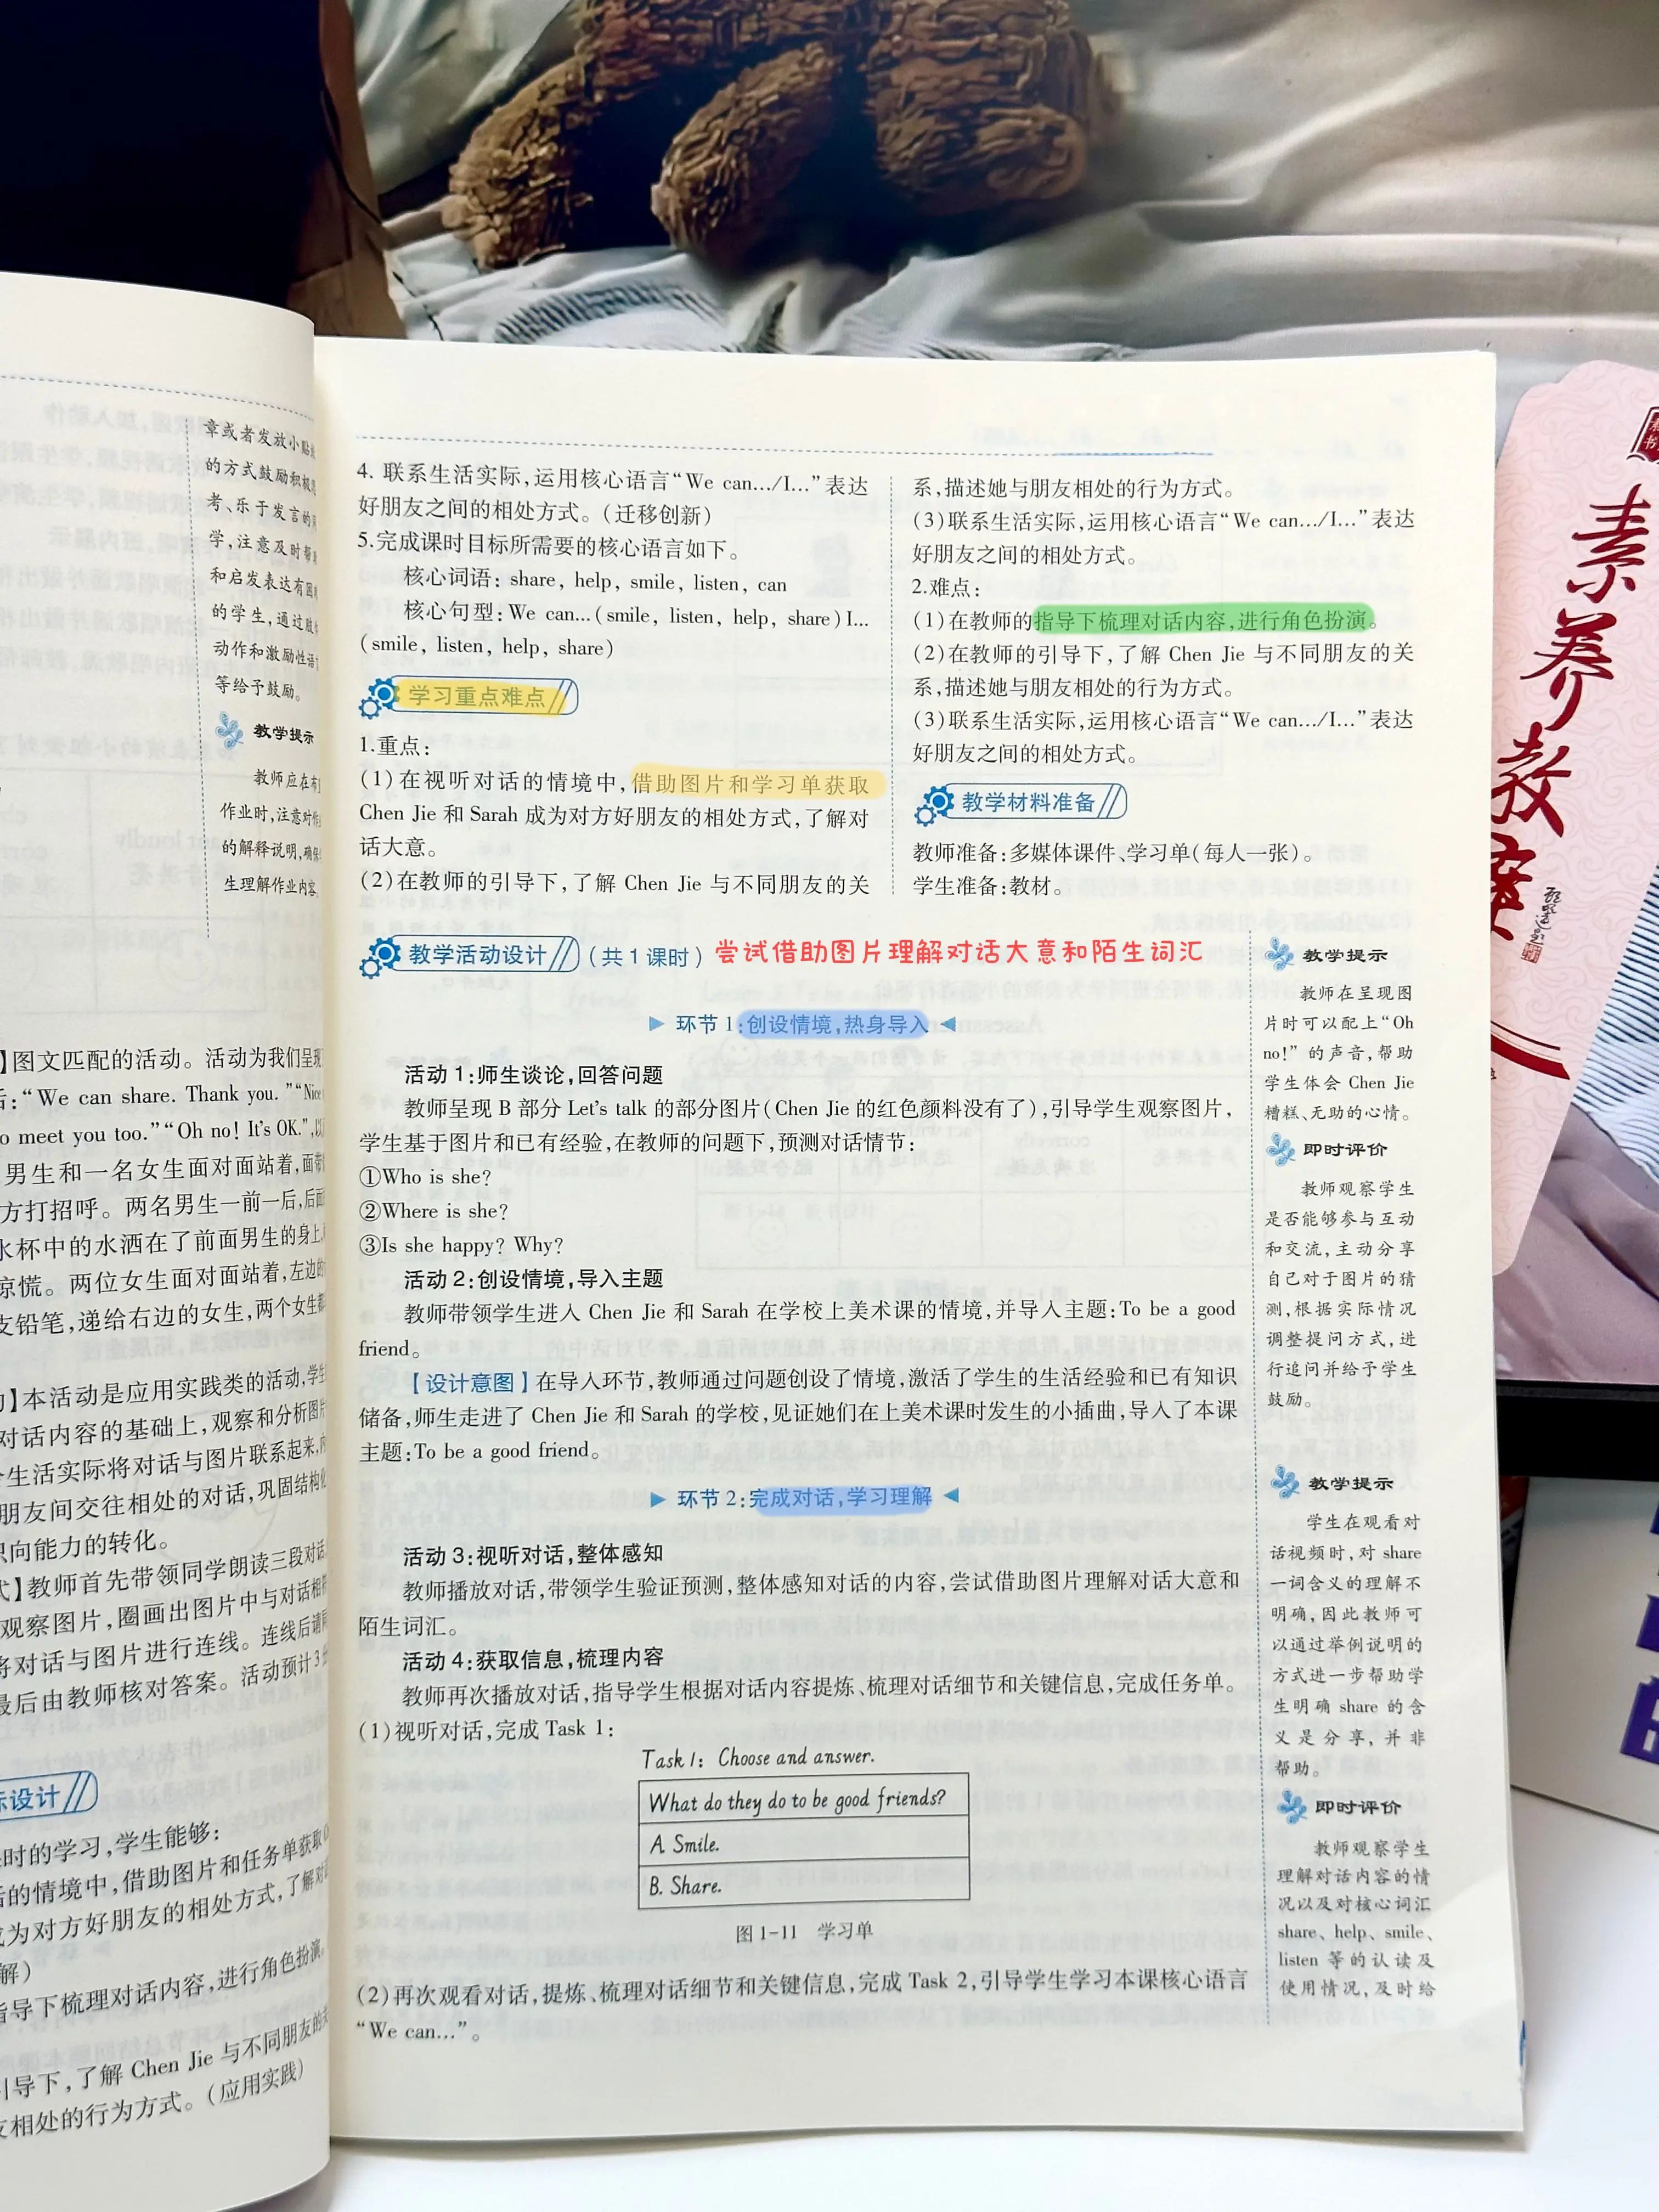 章或者发放小贴
的方式鼓励积极
考、乐于发言的
学,注意及时帮
和启发表达有困
的学生,通过肢
动作和激励性语
等给予鼓励。
教学提示
教师应在布
作业时,注意对作
的解释说明,确保
生理解作业内容
】图文匹配的活动。活动为我们呈现
“We can share. Thank you.”“Nice
o meet you too.”“Oh no! It's OK.”
男生和一名女生面对面站着,面带
方打招呼。两名男生一前一后,后面
水杯中的水洒在了前面男生的身上
惊慌。两位女生面对面站着,左边的
支铅笔,递给右边的女生,两个女生都
】本活动是应用实践类的活动,学生
对话内容的基础上,观察和分析图片
生活实际将对话与图片联系起来
朋友间交往相处的对话,巩固结构化
识向能力的转化。
式】教师首先带领同学朗读三段对话
观察图片,圈画出图片中与对话相
将对话与图片进行连线。连线后请
最后由教师核对答案。活动预计3
标设计
时的学习,学生能够:
的情境中,借助图片和任务单获取
成为对方好朋友的相处方式,了解对
解)
指导下梳理对话内容,进行角色扮演
引导下,了解 Chen Jie 与不同朋友的关
友相处的行为方式。(应用实践)
4. 联系生活实际,运用核心语言“We can.../I...”表达
好朋友之间的相处方式。(迁移创新)
5.完成课时目标所需要的核心语言如下。
核心词语: share, help, smile, listen, can
核心句型: We can...(smile, listen, help, share) I...
(smile, listen, help, share)
学习重点难点
1.重点:
(1)在视听对话的情境中,借助图片和学习单获取
Chen Jie 和 Sarah 成为对方好朋友的相处方式,了解对
话大意。
(2)在教师的引导下,了解 Chen Jie 与不同朋友的关
系,描述她与朋友相处的行为方式。
(3)联系生活实际,运用核心语言“We can.../I...”表达
好朋友之间的相处方式。
2.难点:
(1)在教师的指导下梳理对话内容,进行角色扮演。
(2)在教师的引导下,了解 Chen Jie 与不同朋友的关
系,描述她与朋友相处的行为方式。
(3)联系生活实际,运用核心语言“We can.../I...”表达
好朋友之间的相处方式。
教学材料准备
教师准备:多媒体课件、学习单(每人一张)。
学生准备:教材。
教学活动设计 (共1课时) 尝试借助图片理解对话大意和陌生词汇
▶ 环节 1:创设情境,热身导入 ◀
活动 1:师生谈论,回答问题
教师呈现 B 部分 Let's talk 的部分图片(Chen Jie 的红色颜料没有了),引导学生观察图片,
学生基于图片和已有经验,在教师的问题下,预测对话情节:
①Who is she?
②Where is she?
③Is she happy? Why?
活动 2:创设情境,导入主题
教师带领学生进入 Chen Jie 和 Sarah 在学校上美术课的情境,并导入主题:To be a good
friend。
【设计意图】在导入环节,教师通过问题创设了情境,激活了学生的生活经验和已有知识
储备,师生走进了 Chen Jie 和 Sarah 的学校,见证她们在上美术课时发生的小插曲,导入了本课
主题:To be a good friend。
▶ 环节 2:完成对话,学习理解 ◀
活动 3:视听对话,整体感知
教师播放对话,带领学生验证预测,整体感知对话的内容,尝试借助图片理解对话大意和
陌生词汇。
活动 4:获取信息,梳理内容
教师再次播放对话,指导学生根据对话内容提炼、梳理对话细节和关键信息,完成任务单。
(1)视听对话,完成 Task 1:
Task 1: Choose and answer.
What do they do to be good friends?
A. Smile.
B. Share.
图 1-11 学习单
(2)再次观看对话,提炼、梳理对话细节和关键信息,完成 Task 2,引导学生学习本课核心语言
“We can...”。
教学提示
教师在呈现图
片时可以配上“Oh
no!”的声音,帮助
学生体会 Chen Jie
糟糕、无助的心情。
即时评价
教师观察学生
是否能够参与互动
和交流,主动分享
自己对于图片的猜
测,根据实际情况
调整提问方式,进
行追问并给予学生
鼓励。
教学提示
学生在观看对
话视频时,对 share
一词含义的理解不
明确,因此教师可
以通过举例说明的
方式进一步帮助学
生明确 share 的含
义是分享,并非
帮助。
即时评价
教师观察学生
理解对话内容的情
况以及对核心词汇
share、help、smile、
listen 等的认读及
使用情况,及时给
素养教案